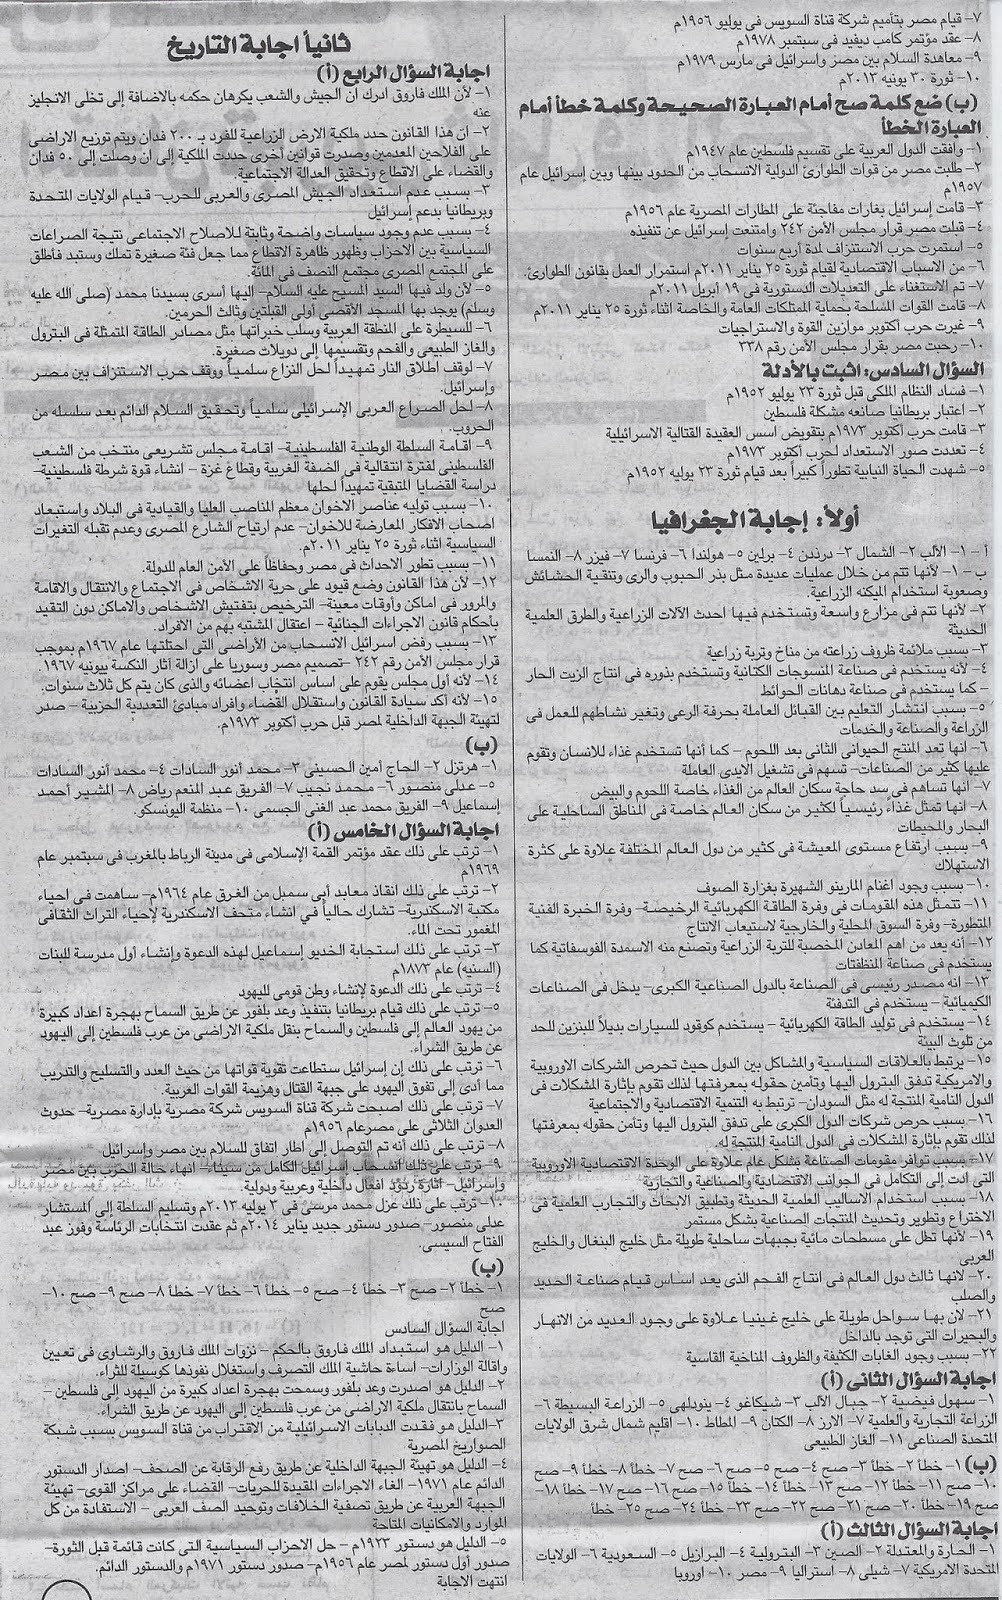 ٧- قيام مصر بتأميم شركة قناة السويس فى يوليو ١٩٥٦م
٨- عقد مؤتمر كامب ديفيد فى سبتمبر ١٩٧٨م
٩- معاهدة السلام بين مصر واسرائيل فى مارس ١٩٧٩م
١٠- ثورة ٣٠ يونيه ٢٠١٣م
(ب) ضع كلمة صح أمام العبارة الصحيحة وكلمة خطأ أمام
العبارة الخطأ
١- وافقت الدول العربية على تقسيم فلسطين عام ١٩٤٧م
٢- طلبت مصر من قوات الطوارئ الدولية الانسحاب من الحدود بينها وبين إسرائيل عام
١٩٥٧م
٣- قامت إسرائيل بغارات مفاجئة على المطارات المصرية عام ١٩٥٦م
٤- قبلت مصر قرار مجلس الأمن ٢٤٢ وامتنعت إسرائيل عن تنفيذه
٥- استمرت حرب الاستنزاف لمدة أربع سنوات
٦- من الاسباب الاقتصادية لقيام ثورة ٢٥ يناير ٢٠١١م استمرار العمل بقانون الطوارئ.
٧- تم الاستغناء على التعديلات الدستورية فى ١٩ أبريل ٢٠١١م
٨- قامت القوات المسلحة بحماية الممتلكات العامة والخاصة اثناء ثورة ٢٥ يناير ٢٠١١م
٩- غيرت حرب أكتوبر موازين القوة والاستراجيات
١٠- رحبت مصر بقرار مجلس الأمن رقم ٣٣٨
السؤال السادس: اثبت بالأدلة
١- فساد النظام الملكى قبل ثورة ٢٣ يوليو ١٩٥٢م
٢- اعتبار بريطانيا صانعه مشكلة فلسطين
٣- قامت حرب أكتوبر ١٩٧٣م بتقويض اسس العقيدة القتالية الاسرائيلية
٤- تعددت صور الاستعداد لحرب أكتوبر ١٩٧٣م
٥- شهدت الحياة النيابية تطوراً كبيراً بعد قيام ثورة ٢٣ يوليه ١٩٥٢م
أولاً: إجابة الجغرافيا
أ - ١- الألب ٢- الشمال ٣- درندن ٤- برلين ٥- هولندا ٦- فرنسا ٧- فيزر ٨- النمسا
ب - ١- لأنها تتم من خلال عمليات عديدة مثل بذر الحبوب والرى وتنقية الحشائش
وصعوبة استخدام الميكنه الزراعية.
٢- لأنها تتم فى مزارع واسعة وتستخدم فيها احدث الآلات الزراعية والطرق العلمية
الحديثة
٣- بسبب ملائمة ظروف زراعته من مناخ وتربة زراعية
٤- لأنه يستخدم فى صناعة المنسوجات الكتانية وتستخدم بذوره فى انتاج الزيت الحار
- كما يستخدم فى صناعة دهانات الحوائط
٥- بسبب انتشار التعليم بين القبائل العاملة بحرفة الرعى وتغير نشاطهم للعمل فى
الزراعة والصناعة والخدمات
٦- انها تعد المنتج الحيوانى الثانى بعد اللحوم - كما أنها تستخدم غذاء للانسان وتقوم
عليها كثير من الصناعات- تسهم فى تشغيل الايدى العاملة
٧- أنها تساهم فى سد حاجة سكان العالم من الغذاء خاصة اللحوم والبيض
٨- انها تمثل غذاء رئيسياً لكثير من سكان العالم خاصة فى المناطق الساحلية على
البحار والمحيطات
٩- بسبب ارتفاع مستوى المعيشة فى كثير من دول العالم المختلفة علاوة على كثرة
الاستهلاك
١٠- بسبب وجود اغنام المارينو الشهيرة بغزارة الصوف
١١- تتمثل هذه المقومات فى وفرة الطاقة الكهربائية الرخيصة- وفرة الخبرة الفنية
المتطورة- وفرة السوق المحلية والخارجية لاستيعاب الانتاج
١٢- أنه يعد من اهم المعادن المخصبة للتربة الزراعية وتصنع منه الاسمدة الفوسفاتية كما
يستخدم فى صناعة المنظفات
١٣- انه مصدر رئيسى فى الصناعة بالدول الصناعية الكبرى- يدخل فى الصناعات
الكيميائية - يستخدم فى التدفئة
١٤- يستخدم فى توليد الطاقة الكهربائية - يستخدم كوقود للسيارات بديلاً للبنزين للحد
من تلوث البيئة
١٥- يرتبط بالعلاقات السياسية والمشاكل بين الدول حيث تحرص الشركات الاوروبية
والامريكية تدفق البترول اليها وتامين حقوله بمعرفتها لذلك تقوم بإثارة المشكلات فى
الدول النامية المنتجة له مثل السودان- ترتبط به التنمية الاقتصادية والاجتماعية
١٦- بسبب حرص شركات الدول الكبرى على تدفق البترول اليها وتامن حقوله بمعرفتها
لذلك تقوم بإثارة المشكلات فى الدول النامية المنتجة له.
١٧- بسبب توافر مقومات الصناعة بشكل عام علاوة على الوحدة الاقتصادية الاوروبية
التى ادت إلى التكامل فى الجوانب الاقتصادية والصناعية والتجارية
١٨- بسبب استخدام الاساليب العلمية الحديثة وتطبيق الابحاث والتجارب العلمية فى
الاختراع وتطوير وتحديث المنتجات الصناعية بشكل مستمر
١٩- لأنها تظل على مسطحات مائية بجبهات ساحلية طويلة مثل خليج البنغال والخليج
العربى
٢٠- لانها ثالث دول العالم فى انتاج الفحم الذى يعد اساس قيام صناعة الحديد
والصلب
٢١- لان بها سواحل طويلة على خليج غينيا علاوة على وجود العديد من الانهار
والبحيرات التى توجد بالداخل
٢٢- بسبب وجود الغابات الكثيفة والظروف المناخية القاسية
اجابة السؤال الثانى (أ)
١- سهول فيضية ٢- جبال الألب ٣- شيكاغو ٤- بنودلهى ٥- الزراعة البسيطة ٦-
الزراعة التجارية والعلمية ٧- الارز ٨- الكتان ٩- المطاط ١٠- اقليم شمال شرق الولايات
المتحدة الصناعى ١١- الغاز الطبيعى
(ب) ١- خطأ ٢- خطأ ٣- صح ٤- صح ٥- صح ٦- صح ٧- خطأ ٨- خطأ ٩- صح
١٠- صح ١١- خطأ ١٢- صح ١٣- خطأ ١٤- خطأ ١٥- صح ١٦- صح ١٧- خطأ ١٨-
صح ١٩- خطأ ٢٠- خطأ ٢١- صح ٢٢- صح ٢٣- خطأ ٢٤- صح ٢٥- خطأ
اجابة السؤال الثالث (أ)
١- الحارة والمعتدلة ٢- الصين ٣- البترولية ٤- البرازيل ٥- السعودية ٦- الولايات
المتحدة الامريكية ٧- شيلى ٨- استراليا ٩- مصر ١٠- اوروبا
ثانياً اجابة التاريخ
اجابة السؤال الرابع (أ)
١- لأن الملك فاروق ادرك ان الجيش والشعب يكرهان حكمه بالاضافة إلى تخلى الانجليز
عنه
٢- ان هذا القانون حدد ملكية الارض الزراعية للفرد بـ ٢٠٠ فدان ويتم توزيع الاراضى
على الفلاحين المعدمين وصدرت قوانين أخرى حددت الملكية إلى ان وصلت إلى ٥٠ فدان
والقضاء على الاقطاع وتحقيق العدالة الاجتماعية.
٣- بسبب عدم استعداد الجيش المصرى والعربى للحرب- قيام الولايات المتحدة
وبريطانيا بدعم إسرائيل
٤- بسبب عدم وجود سياسات واضحة وثابتة للاصلاح الاجتماعى نتيجة الصراعات
السياسية بين الاحزاب وظهور ظاهرة الاقطاع مما جعل فئة صغيرة تملك وستبد فأطلق
على المجتمع المصرى مجتمع النصف فى المائة.
٥- لأن ولد فيها السيد المسيح عليه السلام- اليها أسرى بسيدنا محمد (صلى الله عليه
وسلم) يوجد بها المسجد الأقصى أولى القبلتين وثالث الحرمين.
٦- للسيطرة على المنطقة العربية وسلب خبراتها مثل مصادر الطاقة المتمثلة فى البترول
والغاز الطبيعى والفحم وتقسيمها إلى دويلات صغيرة.
٧- لوقف اطلاق النار تمهيداً لحل النزاع سلمياً ووقف حرب الاستنزاف بين مصر
وإسرائيل.
٨- لحل الصراع العربى الإسرائيلى سلمياً وتحقيق السلام الدائم بعد سلسله من
الحروب.
٩- أقامة السلطة الوطنية الفلسطينية- اقامة مجلس تشريعى منتخب من الشعب
الفلسطينى لفترة انتقالية فى الضفة الغربية وقطاع غزة - انشاء قوة شرطة فلسطينية-
دراسة القضايا المتبقية تمهيداً لحلها
١٠- بسبب توليه عناصر الاخوان معظم المناصب العليا والقيادية فى البلاد واستبعاد
اصحاب الافكار المعارضة للاخوان- عدم ارتياح الشارع المصرى وعدم تقبله التغيرات
السياسية اثناء ثورة ٢٥ يناير ٢٠١١م.
١١- بسبب تطور الاحداث فى مصر وحفاظاً على الأمن العام للدولة.
١٢- لأن هذا القانون وضع قيود على حرية الاشخاص فى الاجتماع والانتقال والاقامة
والمرور فى اماكن وأوقات معينة- الترخيص بتفتيش الاشخاص والاماكن دون التقيد
بأحكام قانون الاجراءات الجنائية - اعتقال المشتبه بهم من الافراد.
١٣- بسبب رفض اسرائيل الانسحاب من الأراضى التى احتلتها عام ١٩٦٧م بموجب
قرار مجلس الأمن رقم ٢٤٢ -تصميم مصر وسوريا على ازالة آثار النكسة بيونيه ١٩٦٧
١٤- لأنه أول مجلس يقوم على اساس انتخاب اعضائه والذى كان يتم كل ثلاث سنوات.
١٥- لأنه أكد سيادة القانون واستقلال القضاء وافراد مبادئ التعددية الحزبية - صدر
لتهيئة الجبهة الداخلية لمصر قبل حرب أكتوبر ١٩٧٣م.
(ب)
١- هرتزل ٢- الحاج أمين الحسينى ٣- محمد أنور السادات ٤- محمد أنور السادات
٥- عدلى منصور ٦- محمد نجيب ٧- الفريق عبد المنعم رياض ٨- المشير أحمد
إسماعيل ٩- الفريق محمد عبد الغنى الجسمى ١٠- منظمة اليونسكو.
اجابة السؤال الخامس (أ)
١- ترتب على ذلك عقد مؤتمر القمة الإسلامى فى مدينة الرباط بالمغرب فى سبتمبر عام
١٩٦٩م
٢- ترتب على ذلك انقاذ معابد أبى سمبل من الغرق عام ١٩٦٤م- ساهمت فى احياء
مكتبة الاسكندرية- تشارك حالياً فى انشاء متحف الاسكندرية لإحياء التراث الثقافى
المغمور تحت الماء.
٣- ترتب على ذلك استجابة الخديو إسماعيل لهذه الدعوة وإنشاء أول مدرسة للبنات
(السنيه) عام ١٨٧٣م
٤- ترتب على ذلك الدعوة لإنشاء وطن قومى لليهود
٥- ترتب على ذلك قيام بريطانيا بتنفيذ وعد بلفور عن طريق السماح بهجرة اعداد كبيرة
من يهود العالم إلى فلسطين والسماح بنقل ملكية الاراضى من عرب فلسطين إلى اليهود
عن طريق الشراء.
٦- ترتب على ذلك إن إسرائيل ستطاعت تقوية قواتها من حيث العدد والتسليح والتدريب
مما أدى إلى تفوق اليهود على جبهة القتال وهزيمة القوات العربية.
٧- ترتب على ذلك اصبحت شركة قناة السويس شركة مصرية بإدارة مصرية- حدوث
العدوان الثلاثى على مصرعام ١٩٥٦م
٨- ترتب على ذلك أنه تم التوصل إلى اطار اتفاق للسلام بين مصر وإسرائيل
٩- ترتب على ذلك انسحاب إسرائيل الكامل من سيناء- انهاء حالة الحرب بين مصر
وإسرائيل- اثارة ردود افعال داخلية وعربية ودولية.
١٠- ترتب على ذلك عزل محمد مرسى فى ٣ يوليه ٢٠١٣م وتسليم السلطة إلى المستشار
عدلى منصور- صدور دستور جديد يناير ٢٠١٤م ثم عقدت انتخابات الرئاسة وفوز عبد
الفتاح السيسى.
(ب)
١- خطأ ٢- صح ٣- خطأ ٤- صح ٥- خطأ ٦- خطأ ٧- خطأ ٨- صح ٩- صح ١٠-
صح
اجابة السؤال السادس
١- الدليل هو استبداد الملك فاروق بالحكم - نزوات الملك فاروق والرشاوى فى تعيين
واقالة الوزارات- اساءة حاشية الملك التصرف واستغلال نفوذها كوسيلة للثراء.
٢- الدليل هو اصدرت وعد بلفور وسمحت بهجرة اعداد كبيرة من اليهود إلى فلسطين-
السماح بانتقال ملكية الاراضى من عرب فلسطين إلى اليهود عن طريق الشراء.
٣- الدليل هو فقدت الدبابات الاسرائيلية من الاقتراب من قناة السويس بسبب شبكة
الصواريخ المصرية
٤- الدليل هو تهيئة الجبهة الداخلية عن طريق رفع الرقابة عن الصحف- اصدار الدستور
الدائم عام ١٩٧١- الغاء الاجراءات المقيدة للحريات- القضاء على مراكز القوى- تهيئة
الجبهة العربية عن طريق تصفية الخلافات وتوحيد الصف العربى - الاستفادة من كل
الموارد والامكانيات المتاحة
٥- الدليل هو دستور ١٩٢٣م - حل الاحزاب السياسية التى كانت قائمة قبل الثورة-
صدور أول دستور لمصر عام ١٩٥٦م- صدور دستور ١٩٧١م والدستور الدائم.
انتهت الاجابة